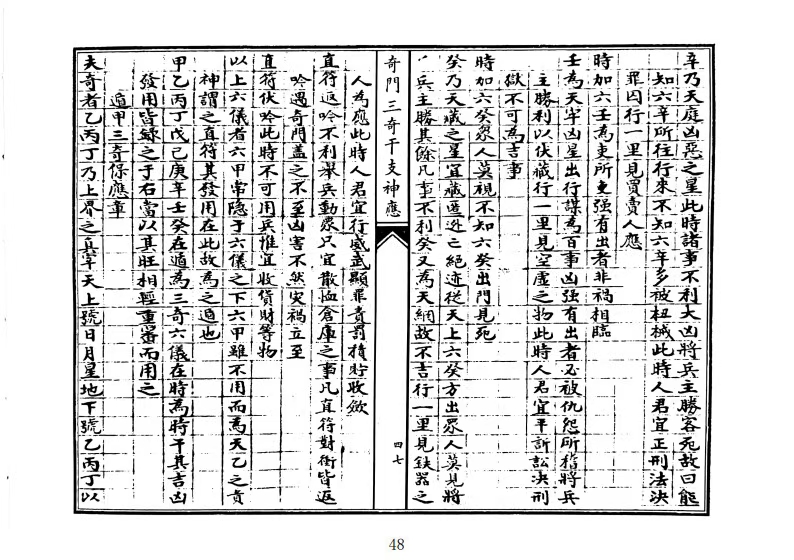 辛乃天庭凶惡之星此時諸事不利大凶將兵主勝客死故曰能
知六辛所往行來不知六辛多被杻械此時人君宜正刑法決
罪囚行一里見買賣人應
時加六壬為吏所更强有出者非禍相臨
壬為天牢凶星出行謀為百事凶强有出者必被仇怨所稽將兵
主勝利以伏藏行一里見空虛之物此時人君宜平訴訟決刑
獄不可為吉事
時加六癸眾人莫視不知六癸出門見死
癸乃天藏之星宜藏匿逃亡絕迹從天上六癸方出眾人莫見將
兵主勝其餘凡事不利癸又為天網故不吉行一里見鉄器之
奇門三奇干支神應
四七
人為應此時人君宜行威武顯罪責罰積貯收斂
直符返吟不利舉兵動眾只宜散恤倉庫之事凡直符對衝皆返
吟遇奇門盖之不至凶害不然灾禍立至
直符伏吟此時不可用兵惟宜收貨財等物
以上六儀者六甲常隱于六儀之下六甲雖不用而為天乙之貴
神謂之直符其發用在此故為之遁也
甲乙丙丁戊己庚辛壬癸在遁為三奇六儀在時為時干其吉凶
發用皆錄之于右當以其旺相輕重審而用之
遁甲三奇保應章
夫奇者乙丙丁乃上界之真宰天上號日月星地下號乙丙丁以
48